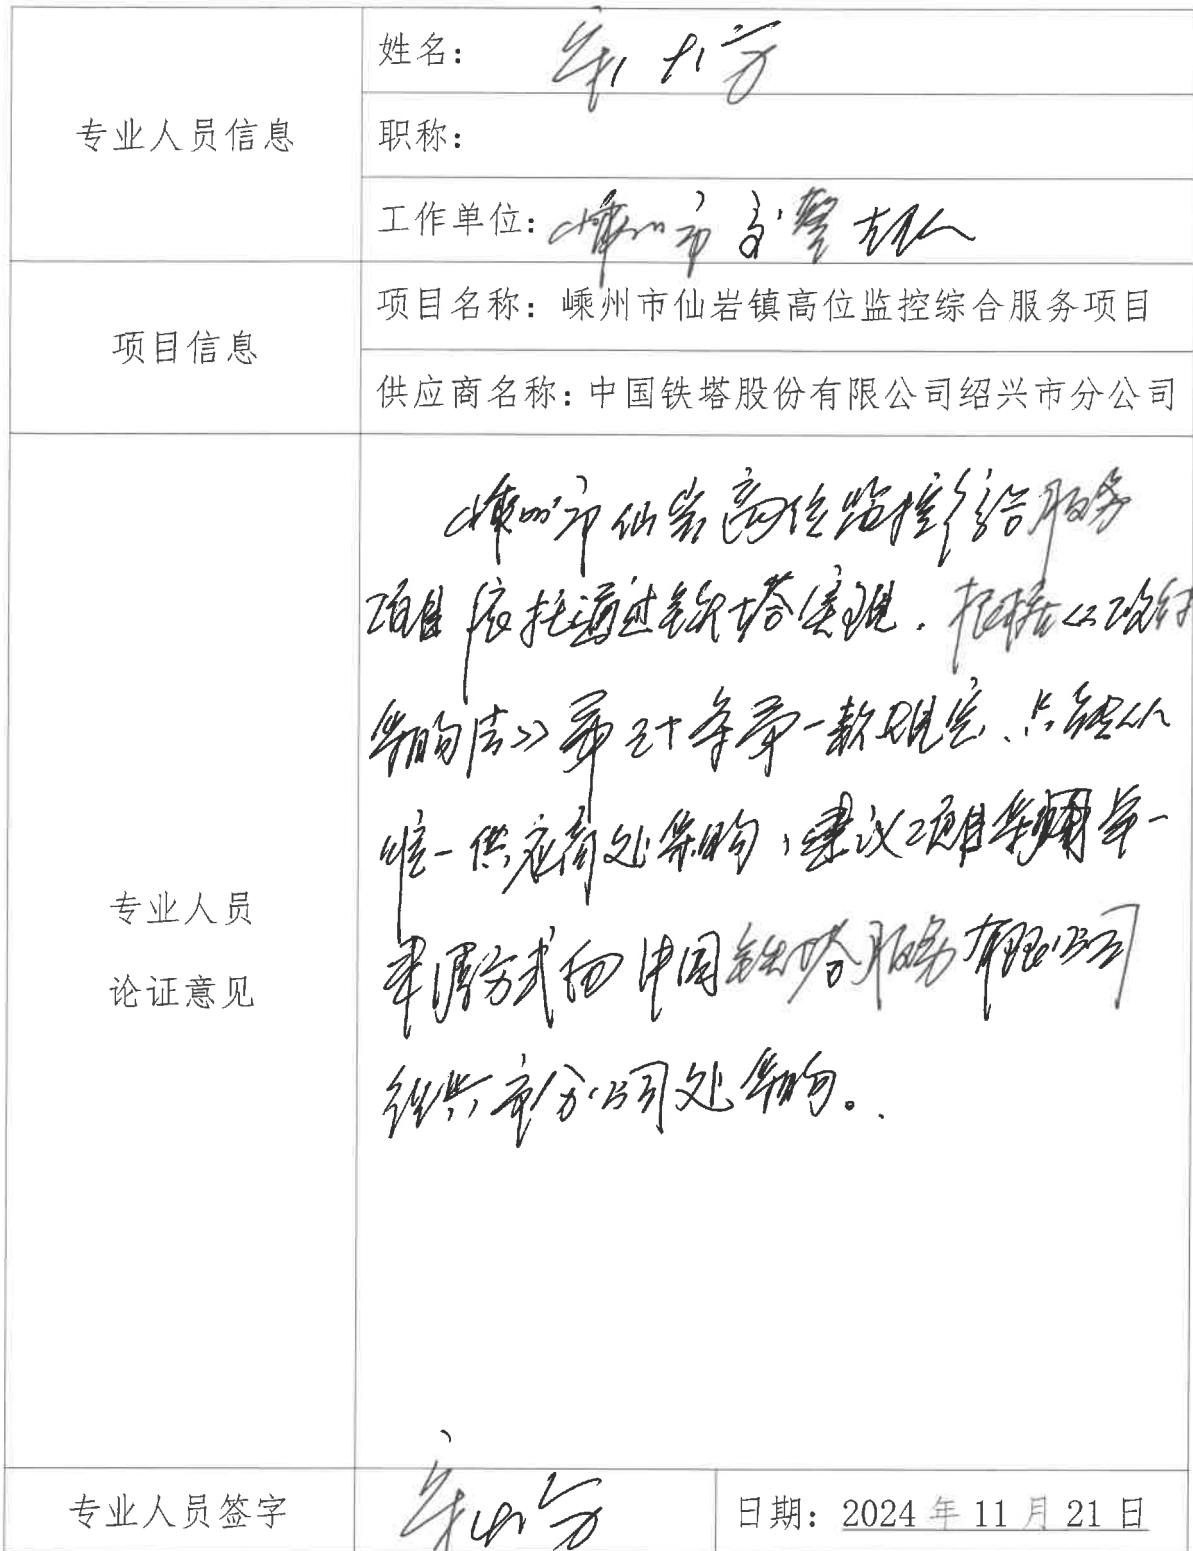 姓名：
专业人员信息
职称：
工作单位：嵊州市交警大队
项目信息
项目名称：嵊州市仙岩镇高位监控综合服务项目
供应商名称：中国铁塔股份有限公司绍兴市分公司
专业人员
论证意见
嵊州市仙岩高位监控综合服务
项目依托通过铁塔实现．根据《政府
采购法》第三十条第一款规定、只能从
唯一供应商处采购，建议项目采用单一
来源方式向中国铁塔服务有限公司
绍兴市分公司处采购。
专业人员签字
日期：2024年11月21日